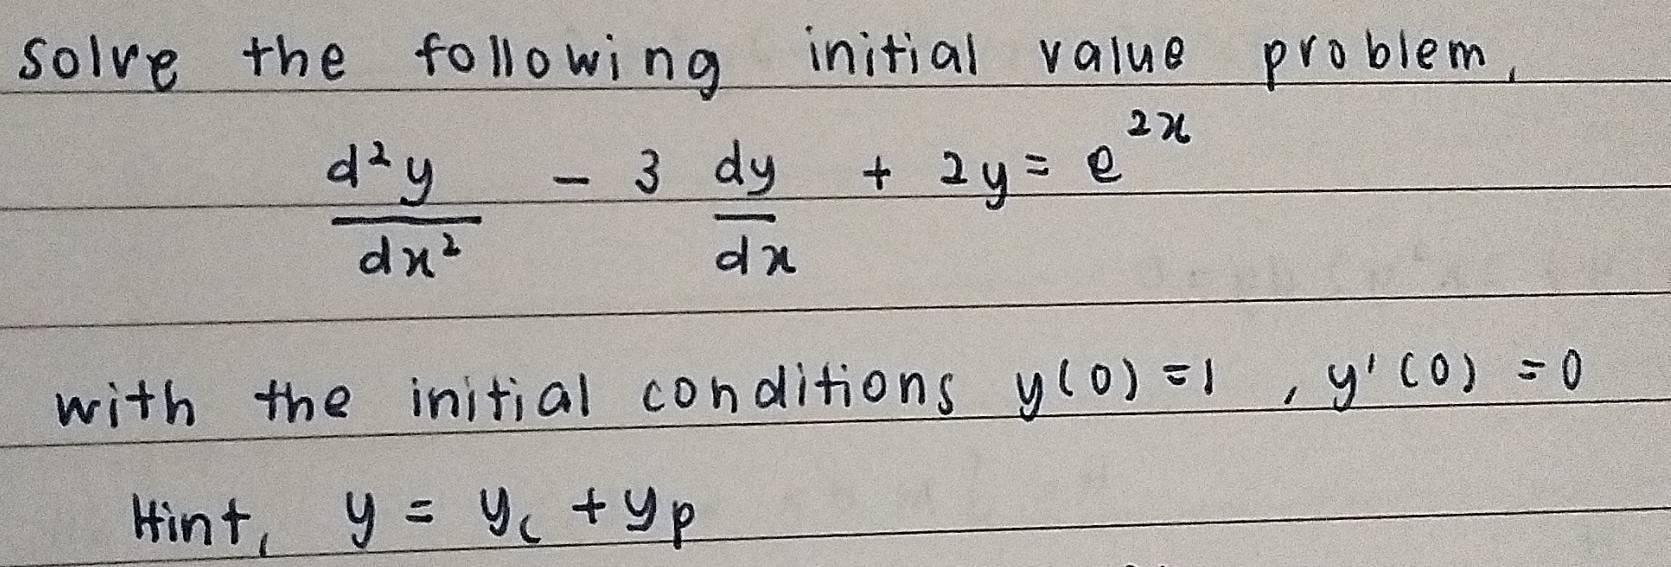 solve the following initial value problem,
d²y/dx² - 3 dy/dx + 2y = e^2x
with the initial conditions y(0) = 1 , y'(0) = 0
Hint, y = yc + yp